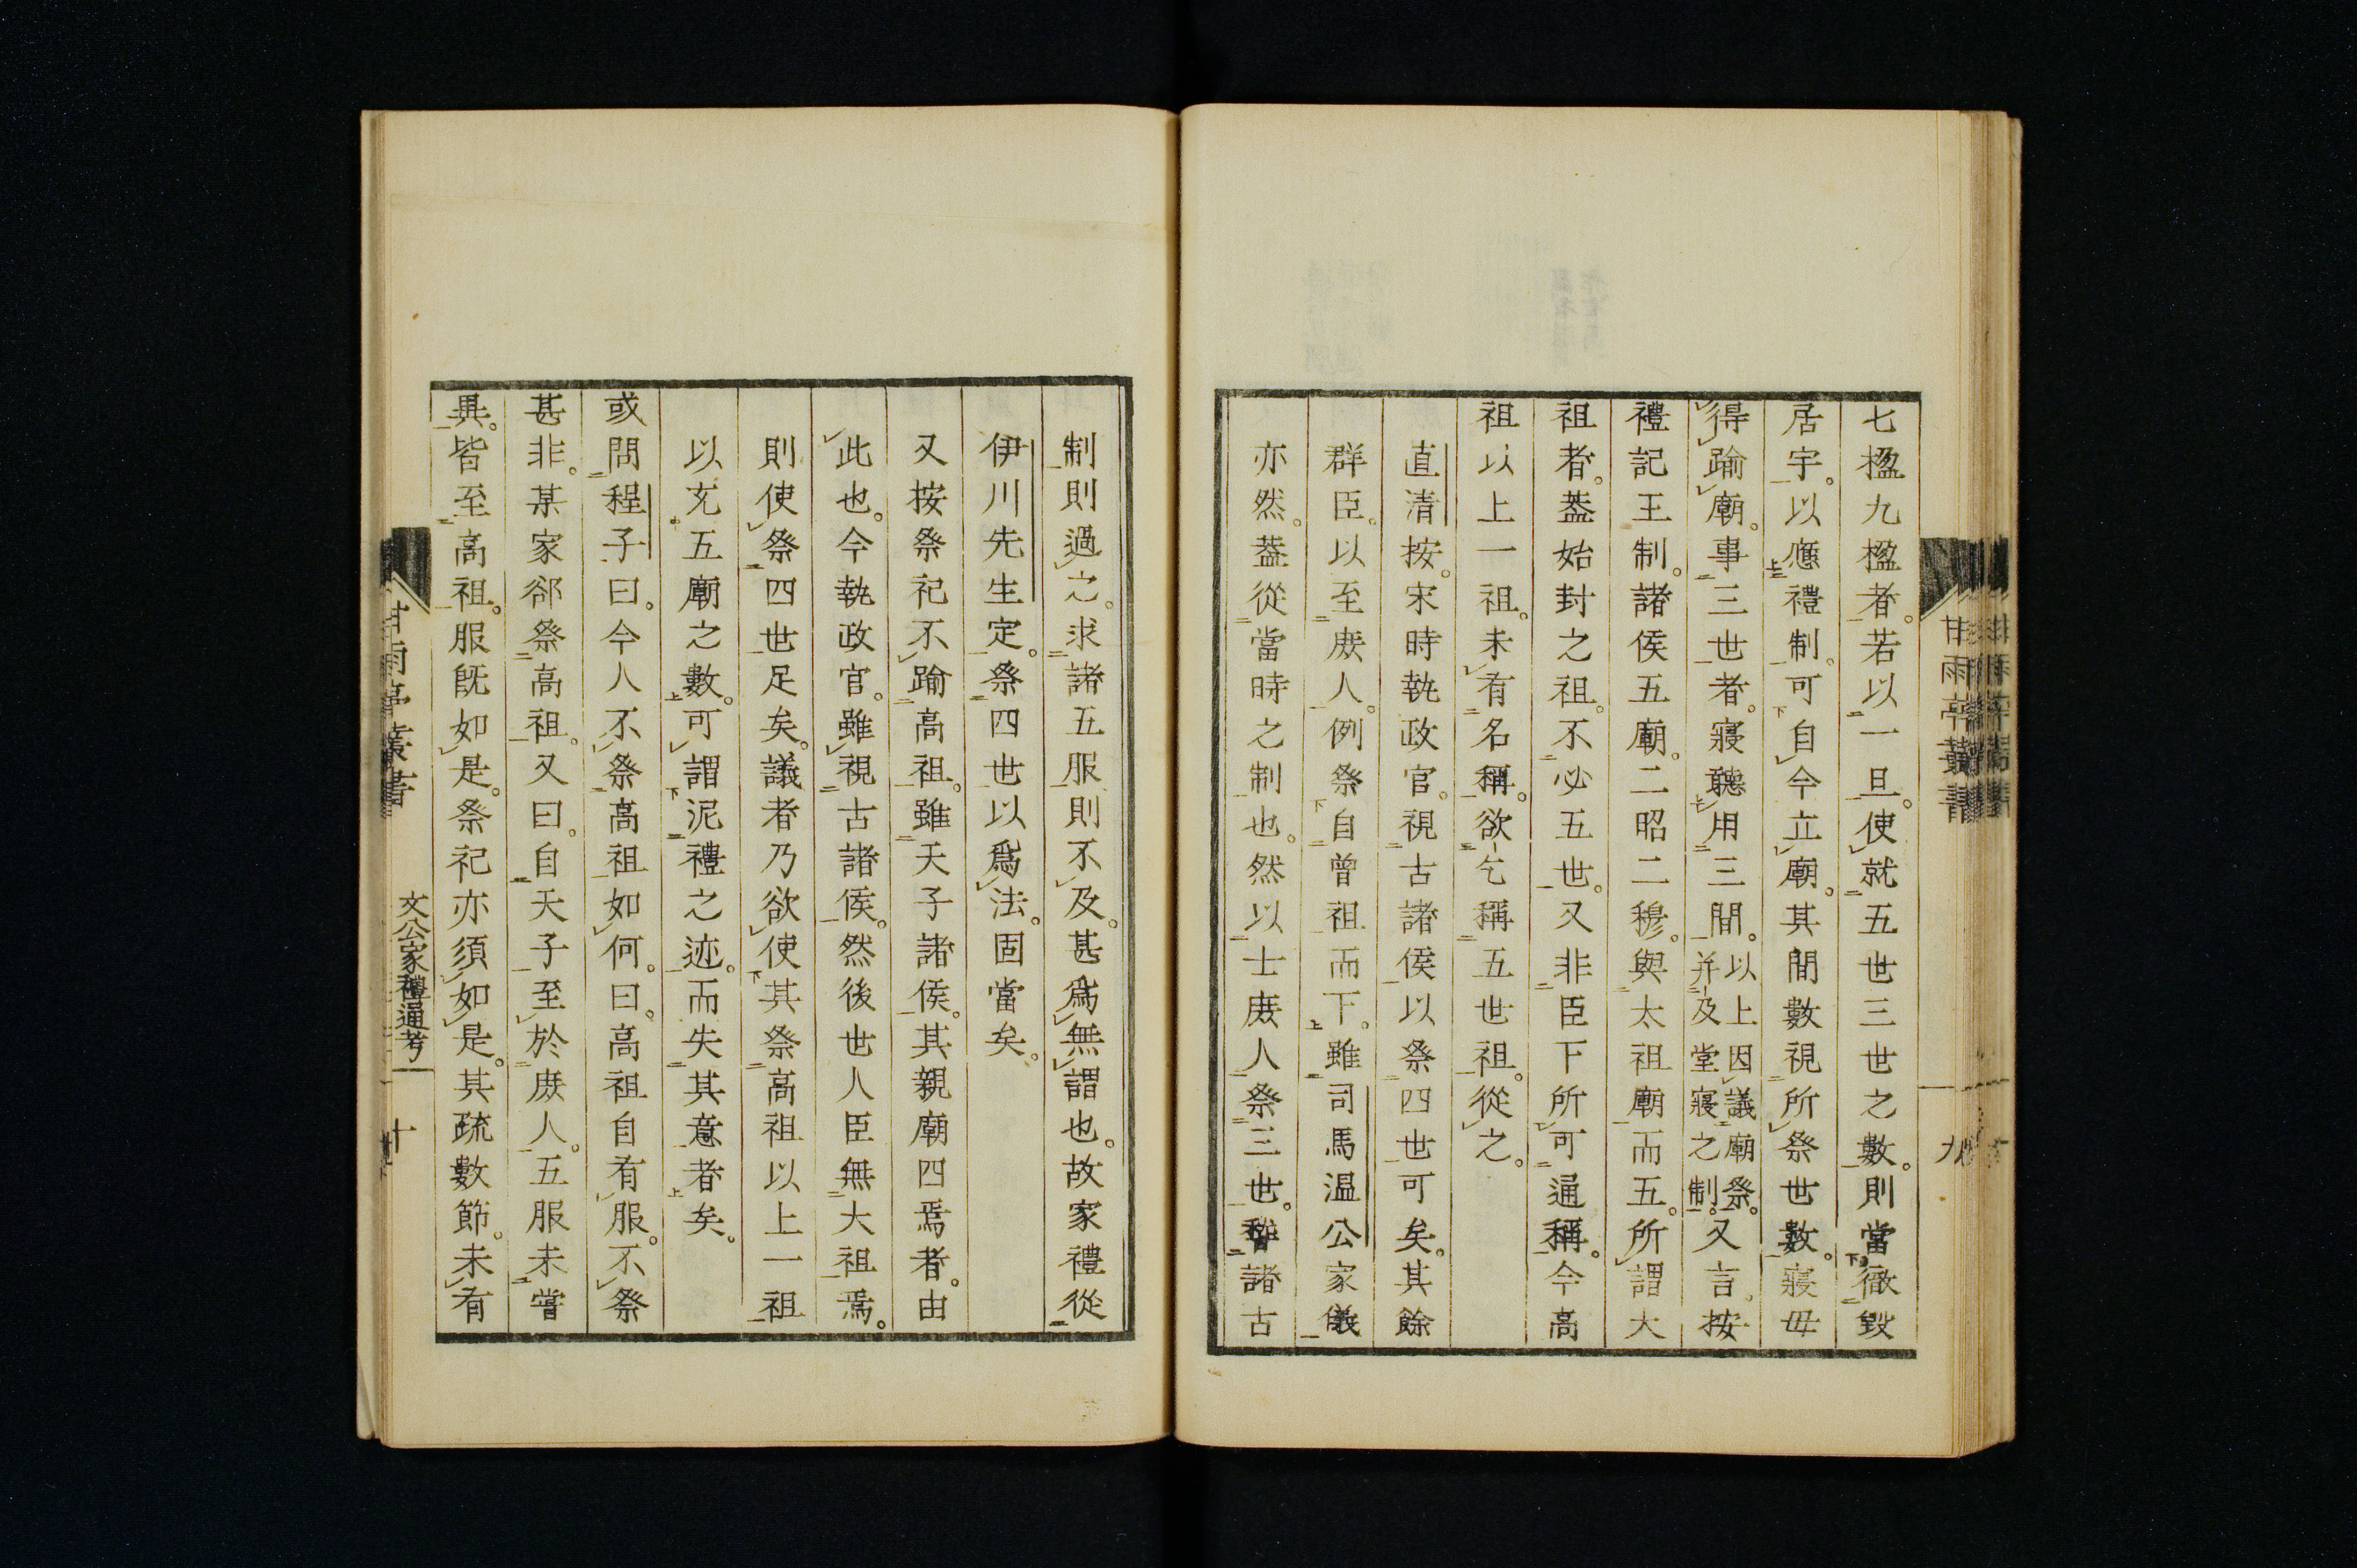 七楹九楹者。若以一旦。使就五世三世之數。則當徹毀
居宇。以應禮制。可自今立廟。其間數視所祭世數。寢毋
得踰廟。事三世者。寢聽用三間。以上因議廟祭。并及堂寢之制。又言。按
禮記王制。諸侯五廟。二昭二穆。與太祖廟而五。所謂大
祖者。蓋始封之祖。不必五世。又非臣下所可通稱。今高
祖以上一祖。未有名稱。欲乞稱五世祖。從之。
直清按。宋時執政官。視古諸侯以祭四世可矣。其餘
群臣。以至庶人。例祭自曾祖而下。雖司馬温公家儀
亦然。葢從當時之制也。然以士庶人祭三世。稽諸古
制則過之。求諸五服則不及。甚爲無謂也。故家禮從
伊川先生定。祭四世以爲法。固當矣。
又按祭祀不踰高祖。雖天子諸侯。其親廟四焉者。由
此也。今執政官。雖視古諸侯。然後世人臣無大祖焉。
則使祭四世足矣。議者乃欲使其祭高祖以上一祖
以充五廟之數。可謂泥禮之迹。而失其意者矣。
或問程子曰。今人不祭高祖如何。曰。高祖自有服。不祭
甚非。某家郤祭高祖。又曰。自天子至於庶人。五服未嘗
異。皆至高祖。服既如是。祭祀亦須如是。其疏數節。未有
甘雨亭叢書
九
甘雨亭叢書
文公家禮通考
十